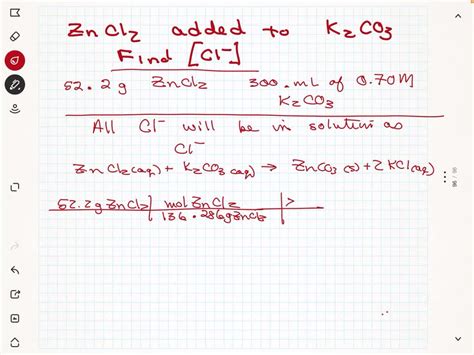 ZnCl2 added to K2CO3
Find [Cl-]
52.2g ZnCl2 300. mL of 0.70M
K2CO3
All Cl- will be in solution as
Cl-
ZnCl2(aq) + K2CO3(aq) → ZnCO3(s) + 2KCl(aq)
52.2g ZnCl2 | mol ZnCl2
136.286g ZnCl2